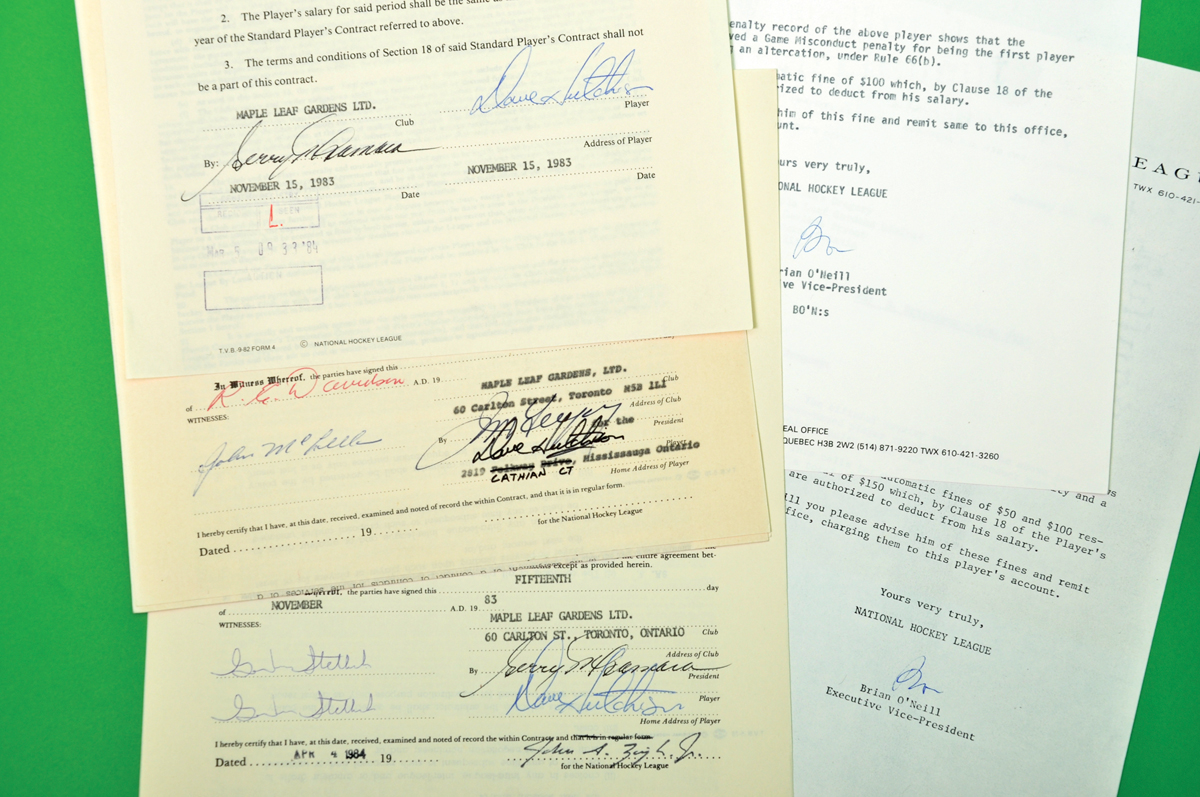 2. The Player's salary for said period shall be the same as
year of the Standard Player's Contract referred to above.
3. The terms and conditions of Section 18 of said Standard Player's Contract shall not
be a part of this contract.
MAPLE LEAF GARDENS LTD.
Club
Dave Hutchison
Player
By: Gerry McNamara
Address of Player
NOVEMBER 15, 1983
Date
NOVEMBER 15, 1983
Date
L.
MAR 5 '84
T.V.B.-9-82 FORM 4 © NATIONAL HOCKEY LEAGUE
In Witness Whereof, the parties have signed this
of R. E. Davidson A.D. 19
WITNESSES:
John McLellan
MAPLE LEAF GARDENS, LTD.
Club
60 Carlton Street, Toronto M5B 1L1
Address of Club
By
President
for the
Dave Hutchison
Player
2819 Drive, Mississauga Ontario
CATHIAN CT
Home Address of Player
I hereby certify that I have, at this date, received, examined and noted of record the within Contract, and that it is in regular form.
Dated 19
for the National Hockey League
entire agreement bet-
except as provided herein.
the parties have signed this FIFTEENTH day
of NOVEMBER A.D. 19 83
WITNESSES:
MAPLE LEAF GARDENS LTD.
60 CARLTON ST., TORONTO, ONTARIO Club
Address of Club
By Gerry McNamara
President
Dave Hutchison
Player
Home Address of Player
I hereby certify that I have, at this date, received, examined and noted of record the within Contract, and that it is in regular form.
Dated APR 4 1984 19
John A. Ziegler Jr.
for the National Hockey League
enalty record of the above player shows that the
ved a Game Misconduct penalty for being the first player
an altercation, under Rule 66(b).
matic fine of $100 which, by Clause 18 of the
rized to deduct from his salary.
him of this fine and remit same to this office,
unt.
urs very truly,
IONAL HOCKEY LEAGUE
rian O'Neill
ve Vice-President
BO'N:s
EAL OFFICE
QUEBEC H3B 2W2 (514) 871-9220 TWX 610-421-3260
EAGU
TWX 610-421-
ty and a
automatic fines of $50 and $100 res-
of $150 which, by Clause 18 of the Player's
are authorized to deduct from his salary.
ill you please advise him of these fines and remit
fice, charging them to this player's account.
Yours very truly,
NATIONAL HOCKEY LEAGUE
Brian O'Neill
Executive Vice-President